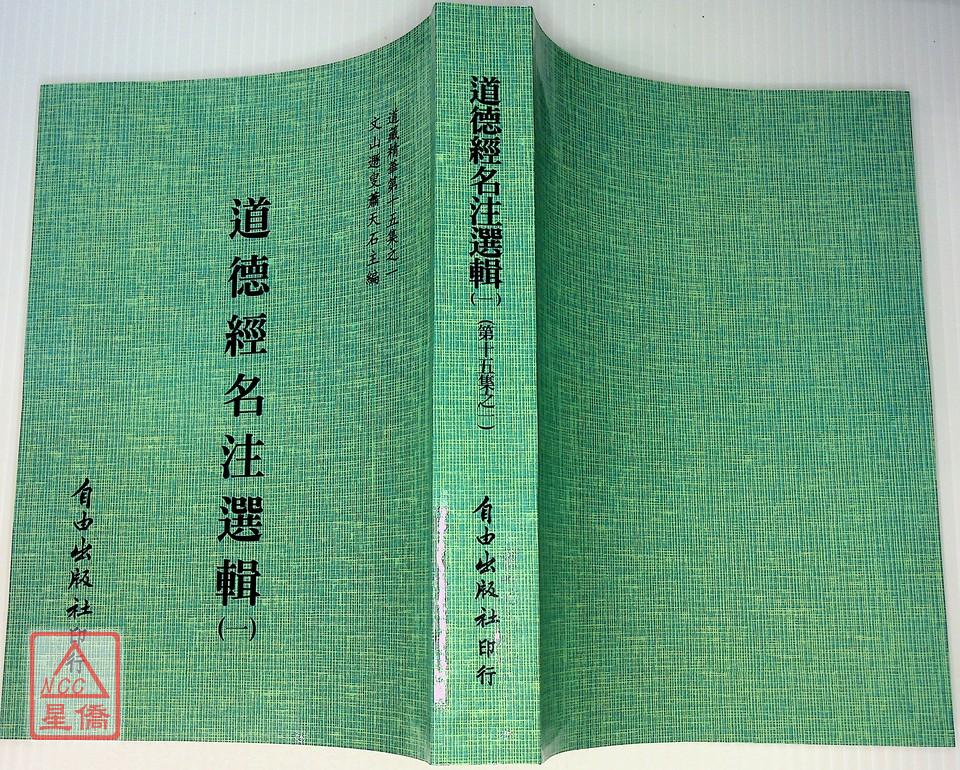 道藏精華第十五集之一
文山遯叟蕭天石主編
道德經名注選輯(一)
自由出版社印行
道德經名注選輯(一)
(第十五集之一)
自由出版社印行
NCC
星僑